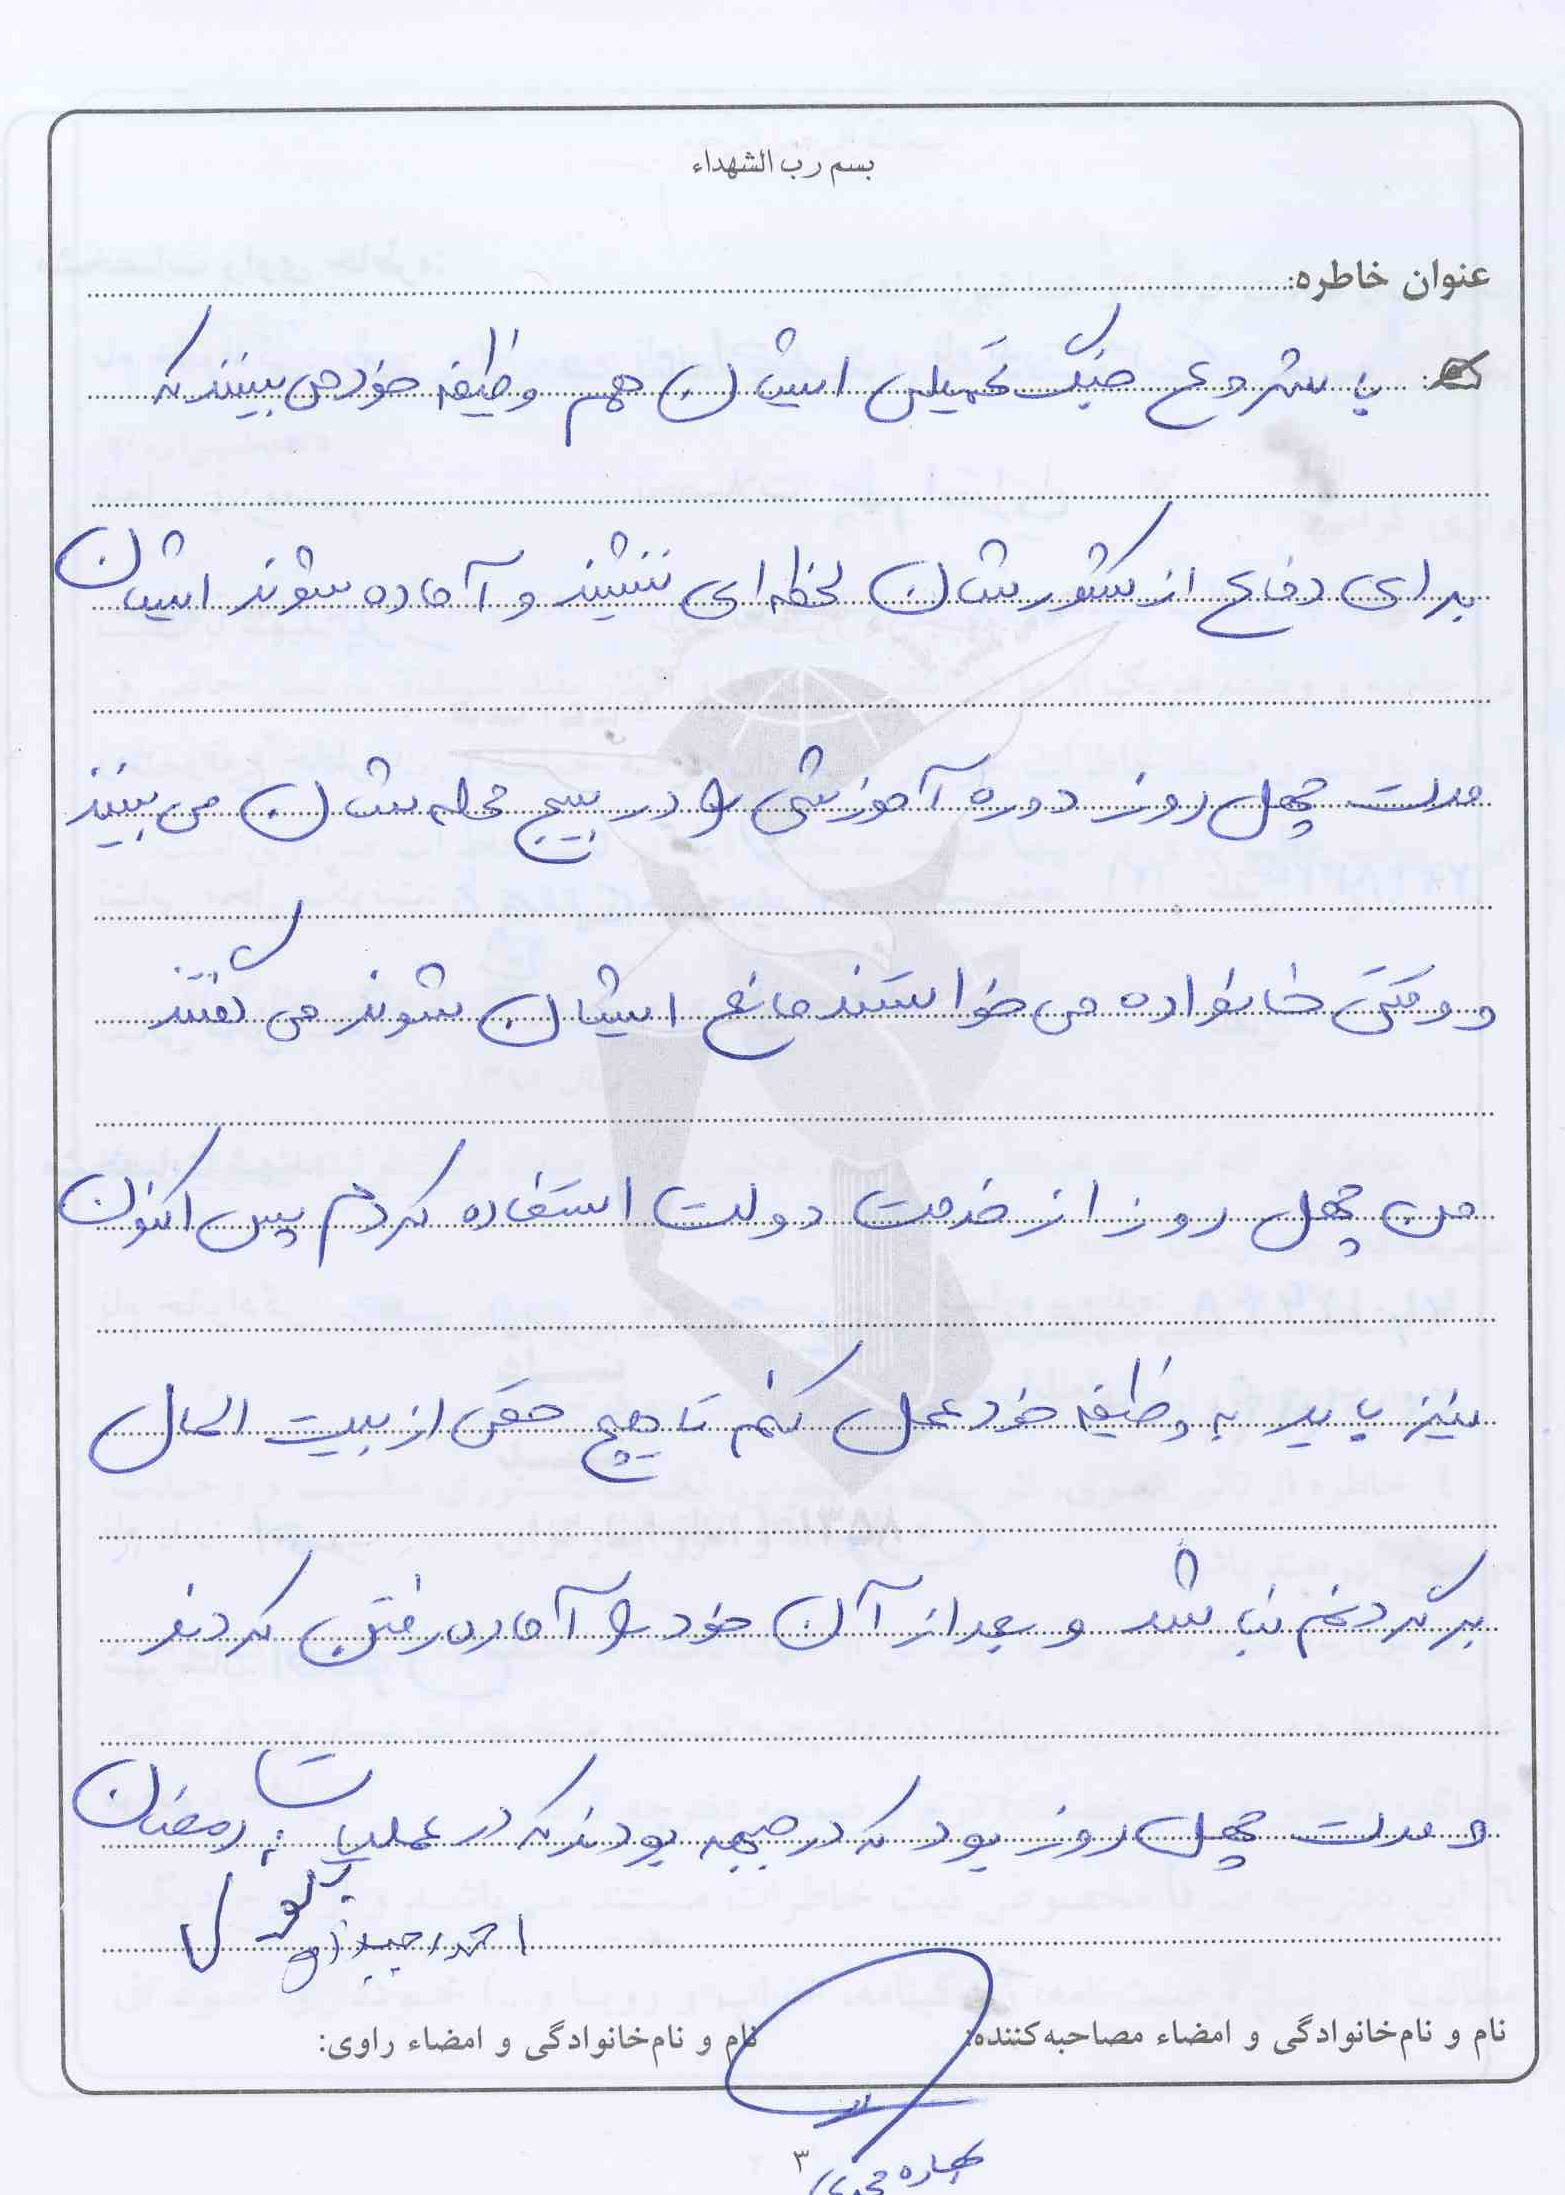 بسم رب الشهداء
عنوان خاطره:
با شروع جنگ تحمیلی ایشان هم وظیفه خود می بینند که
برای دفاع از کشورشان لحظه ای ننشیند و آماده شوند ایشان
مدت چهل روز دوره آموزشی را در بسیج محله شان می بینند
و وقتی خانواده می خواستند مانع ایشان شوند می گفتند
من چهل روز از خدمت دولت استفاده کردم پس اکنون
نیز باید به وظیفه خود عمل کنم تا هیچ حقی از بیت المال
بر گردنم نباشد و بعد از آن خود را آماده رفتن کردند
و مدت چهل روز بود که در جبهه بودند که در عملیات رمضان
احمد
نام و نام‌خانوادگی و امضاء مصاحبه‌کننده:
نام و نام‌خانوادگی و امضاء راوی:
۳